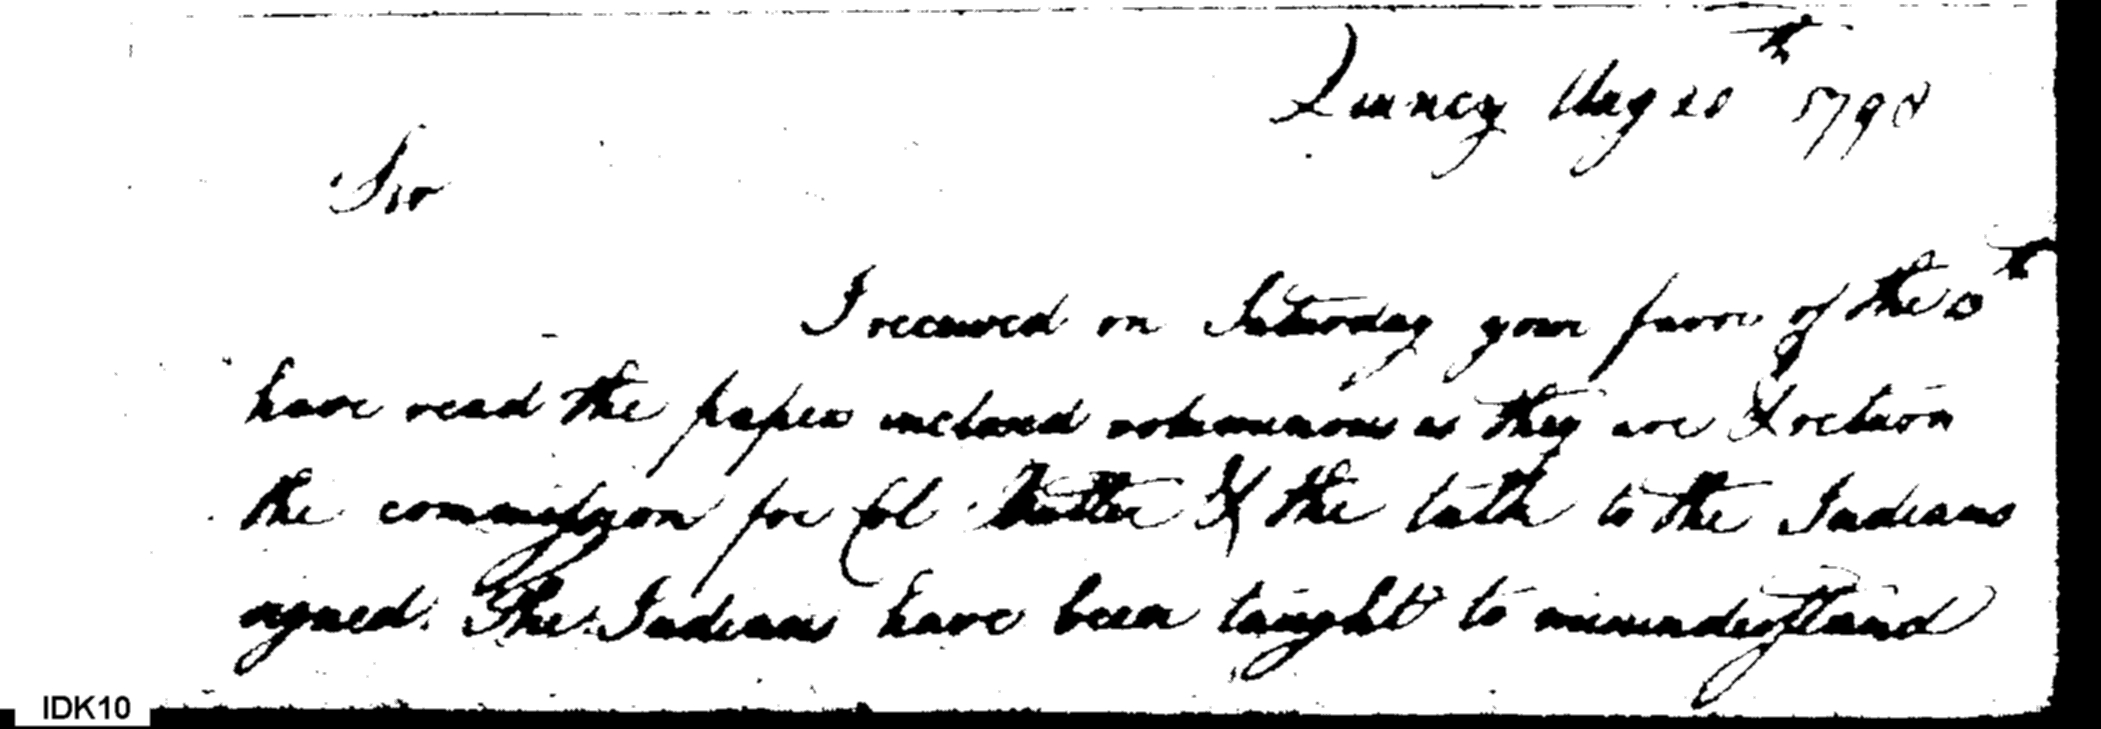 Quincy Aug 20th 1798
Sir
I received on Saturday your favor of the
have read the papers inclosed voluminous as they are & return
the commission for Col Butler & the talk to the Indians
signed. The Indians have been taught to misunderstand
IDK10